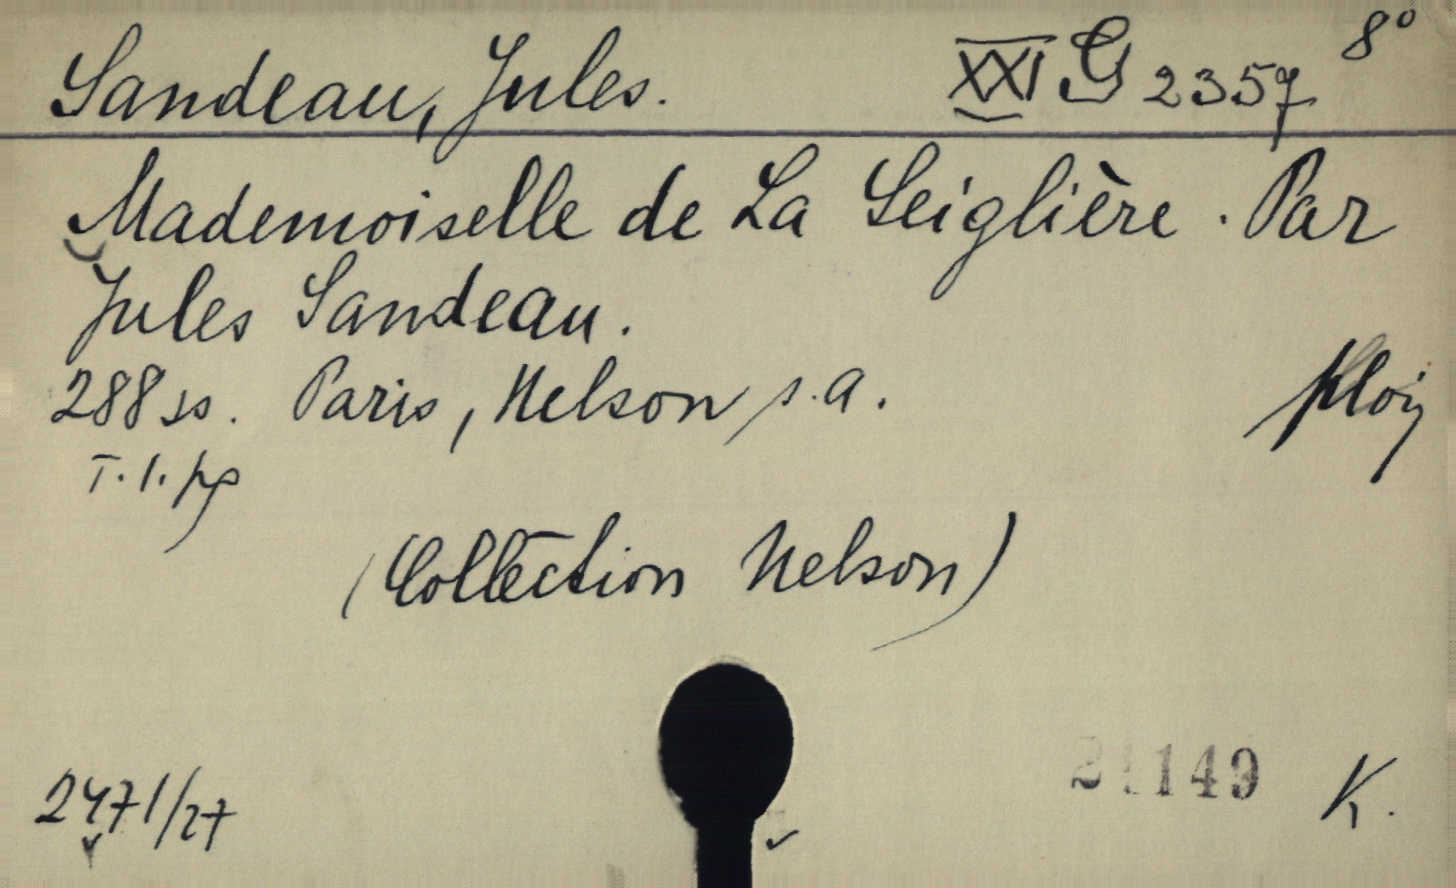 Sandeau, Jules. XXI G 2357 8°
Mademoiselle de La Seiglière. Par
Jules Sandeau.
288 ss. Paris, Nelson s.a.
T. l. pp
(Collection Nelson)
2471/27
149 K.